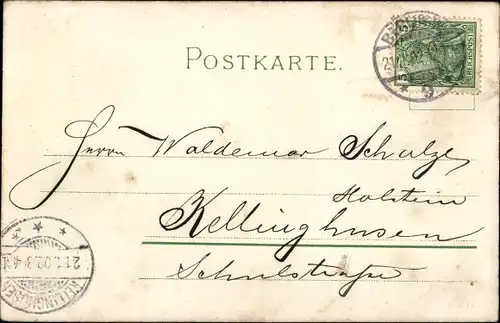 POSTKARTE.
REICHSPOST
Herrn Waldemar Schulze,
Holstein
Kellinghusen
Schulstraße
KELLINGHUSEN